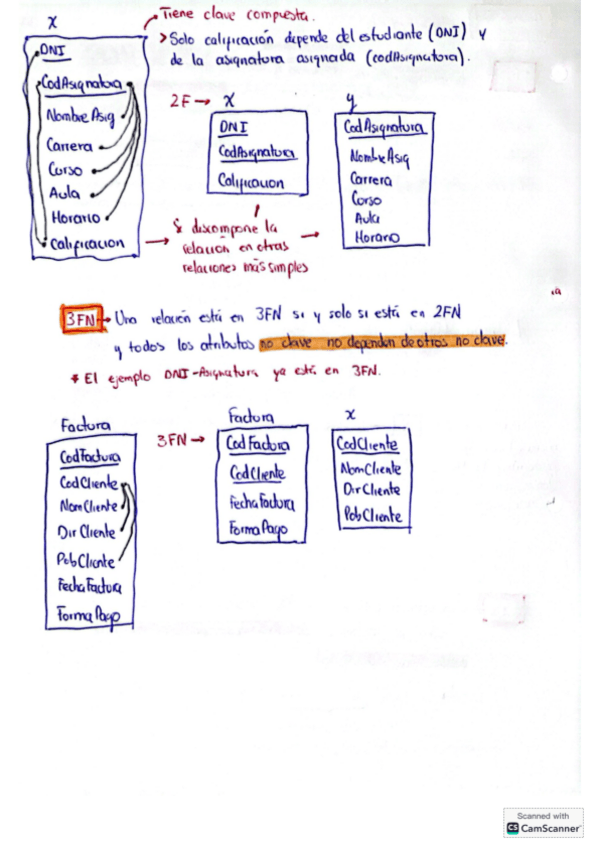 x
Tiene clave compuesta.
> Solo calificación depende del estudiante (DNI) y
de la asignatura asignada (codAsignatura).
DNI
CodAsignatura
Nombre Asig
Carrera
Curso
Aula
Horario
Calificacion
2F → x
DNI
CodAsignatura
Calificacion
y
CodAsignatura
NombreAsig
Carrera
Curso
Aula
Horario
Se discompone la
relación en otras
relaciones más simples
3FN → Una relación está en 3FN si y solo si está en 2FN
y todos los atributos no clave no dependen de otros no clave.
* El ejemplo DNI-Asignatura ya está en 3FN.
Factura
CodFactura
CodCliente
NomCliente
Dir Cliente
PobCliente
FechaFactura
Forma Pago
3FN →
Factura
CodFactura
CodCliente
FechaFactura
FormaPago
x
CodCliente
NomCliente
DirCliente
PobCliente
Scanned with
CS CamScanner